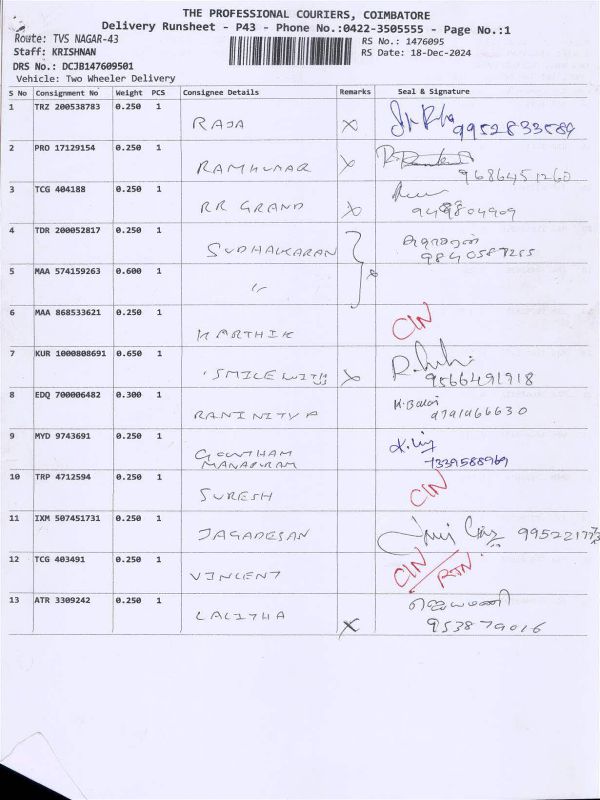 THE PROFESSIONAL COURIERS, COIMBATORE
Delivery Runsheet - P43 - Phone No.:0422-3505555 - Page No.:1
Route: TVS NAGAR-43 RS No.: 1476095
Staff: KRISHNAN RS Date: 18-Dec-2024
DRS No.: DCJB147609501
Vehicle: Two Wheeler Delivery
S No Consignment No Weight PCS Consignee Details Remarks Seal & Signature
1 TRZ 200538783 0.250 1 RAJA X 9952833589
2 PRO 17129154 0.250 1 RAMKUMAR X 9686451260
3 TCG 404188 0.250 1 RR GRAND X
4 TDR 200052817 0.250 1 SUDHAKARAN சுதாகரன்
9840587255
5 MAA 574159263 0.600 1 "
6 MAA 868533621 0.250 1 KARTHIK CIN
7 KUR 1000808691 0.650 1 SMILE WITH X 9566491918
8 EDQ 700006482 0.300 1 RANI NITYA
9 MYD 9743691 0.250 1 GOWTHAM
MANAPURAM 7339588969
10 TRP 4712594 0.250 1 SURESH CIN
11 IXM 507451731 0.250 1 JAGADESAN
12 TCG 403491 0.250 1 VINCENT CIN / RTN
13 ATR 3309242 0.250 1 LALITHA X ஜெயமணி
953879016